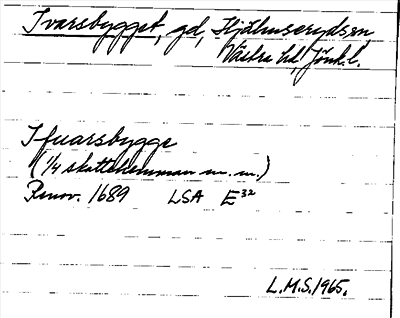 Ivarsbygget, gd, Hjälmseryds sn,
Västra hd, Jönk. l.
Ifuarsbygge
(1/4 skattehemman m. m.)
Renov. 1689 LSA E32
L.M.S. 1965.